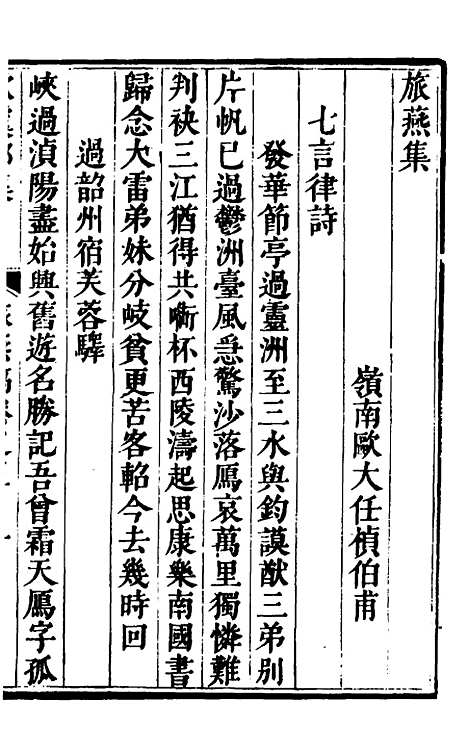 旅燕集
嶺南歐大任楨伯甫
七言律詩
發華節亭過靈洲至三水與鈞謨猷三弟別
片帆巳過鬱洲臺風急驚沙落鴈哀萬里獨憐難
判袂三江猶得共銜杯西陵濤起思康樂南國書
歸念大雷弟妹分岐貧更苦客軺今去幾時回
過韶州宿芙蓉驛
峽過湞陽盡始興舊遊名勝記吾曾霜天鴈字孤